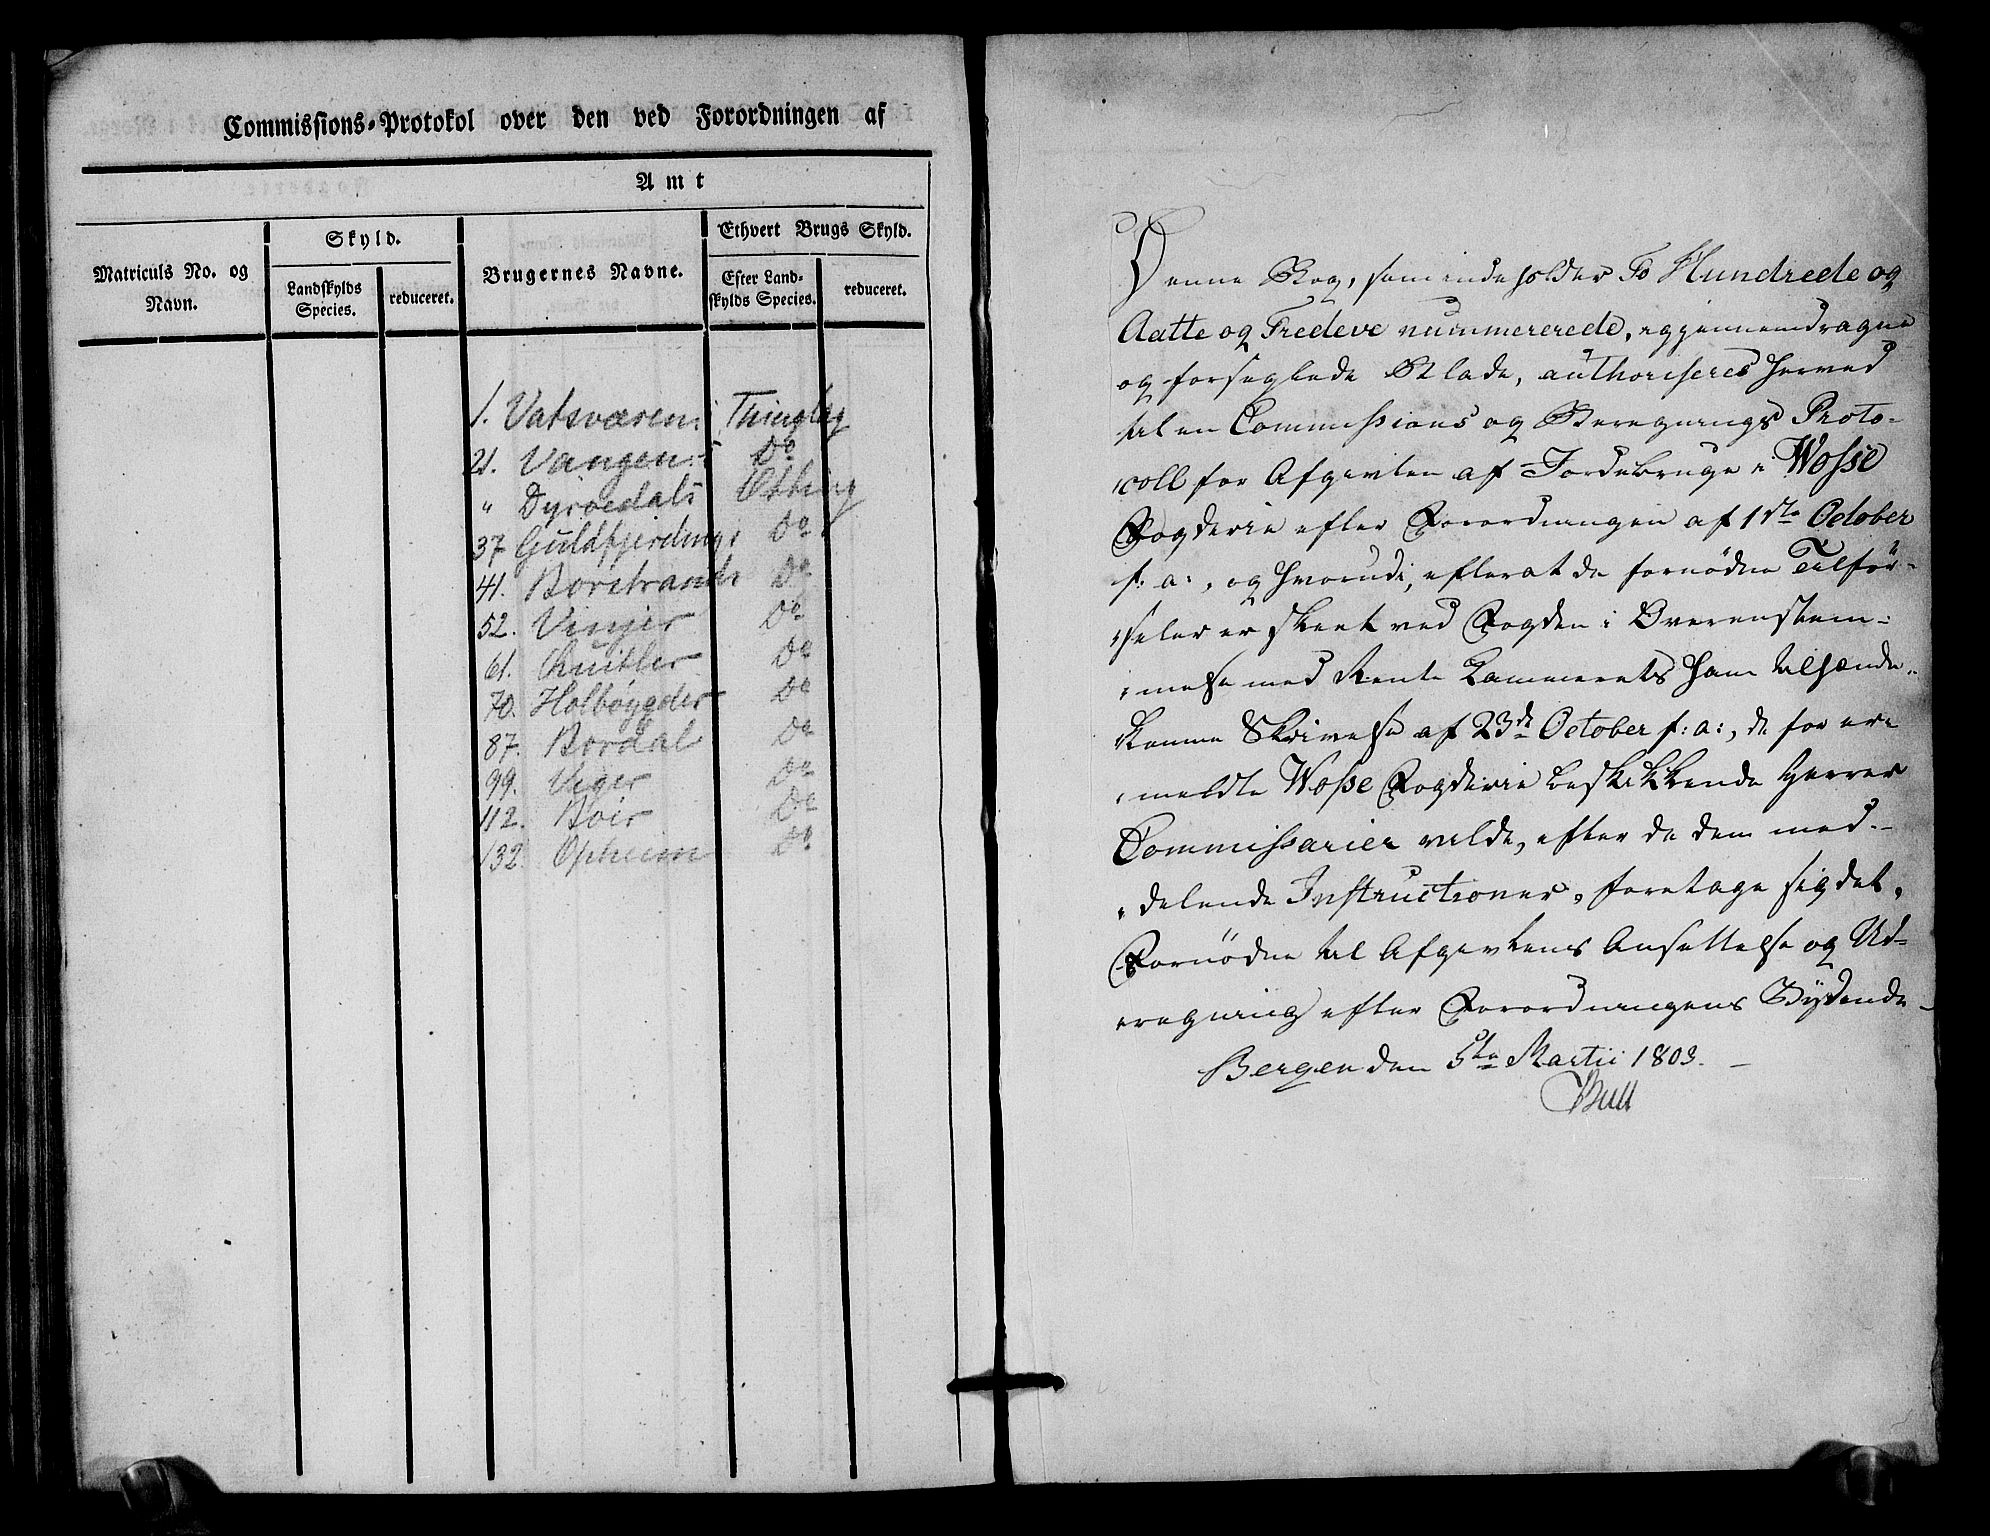 Commissions-Protokol over den ved Forordningen af
Amt
Matriculs No. og Navn.
Skyld.
Landskylds Species.
reduceret.
Brugernes Navne.
Ethvert Brugs Skyld.
Efter Land-
skylds Species.
reduceret.
1. Vatsværens Thinglag
21. Vangens Do
" Dyrvedals Otting
37 Guldfjerdings Do
41. Borstrands Do
52. Vinjer Do
61. Quitler Do
70. Holbøygder Do
87. Bordal Do
99. Do
112. Do
132. Opheim Do
Denne Bog, som indeholder To Hundrede og
Aatte og Tredeve nummererede, igjennemdragne
og forseglede Blade, authoriseres herved
til en Commissions og Beregnings Proto-
coll for Afgivten af Jordebruge i Wosse
Fogderie efter Forordningen af 1ste October
f: a:, og hvorudi, efterat de fornødne Tilfør-
seler er skeet ved Fogden i Overenstem-
melse med Rente Kammerets ham tilhænde-
komne Skrivelse af 23de October f: a:, de for er-
meldte Wosse Fogderie beskikkende Herrer
Commissarier vilde, efter de dem med-
delende Instructioner, foretage sig det
Fornødne til Afgivtens Ansættelse og Ud-
regning efter Forordningens Bydende
Bergen den 5te Martii 1803.
Bull